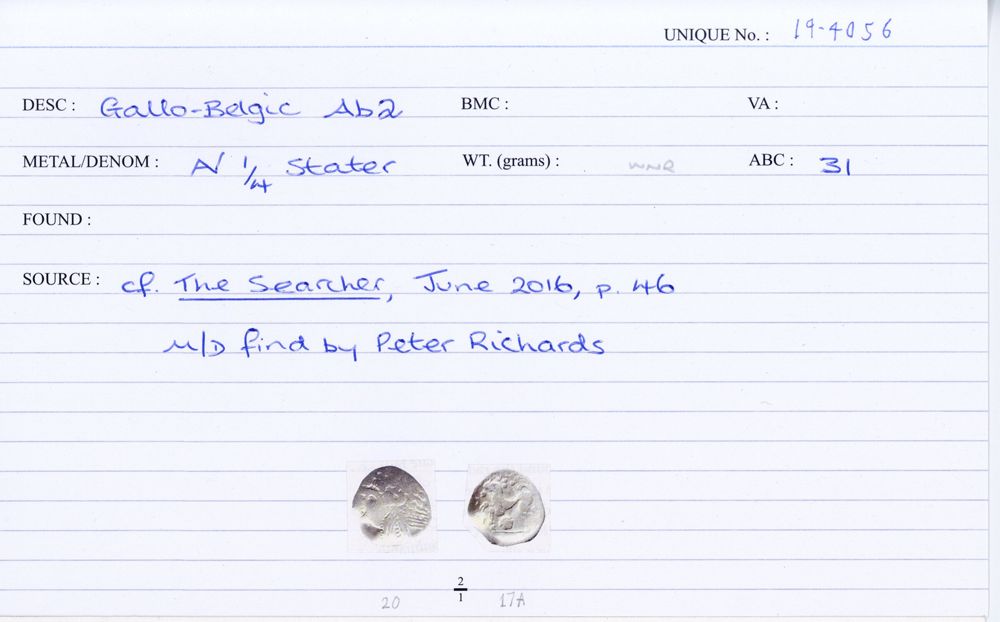 UNIQUE No. : 19-4056
DESC : Gallo-Belgic Ab2 BMC : VA :
METAL/DENOM : A/ 1/4 Stater WT. (grams) : WNR ABC : 31
FOUND :
SOURCE : cf. The Searcher, June 2016, p. 46
M/D find by Peter Richards
2/1
20 17A